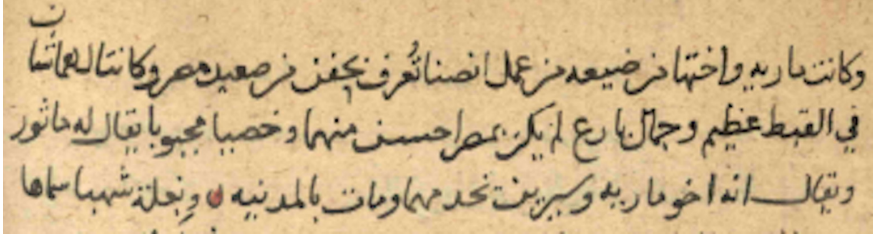 وكانت ماريه واختها من ضيعه من عمل انصنا تُعرف بحفن من صعيد مصر وكانتا لهما شان
في القبط عظيم وجمال بارع لم يكن بمصر احسن منهما وخصيا مجبوبا يقال له ماثور
ويقال انه اخو ماريه وسيرين نخدمهما ومات بالمدنيه وبغلة شهبا سماها